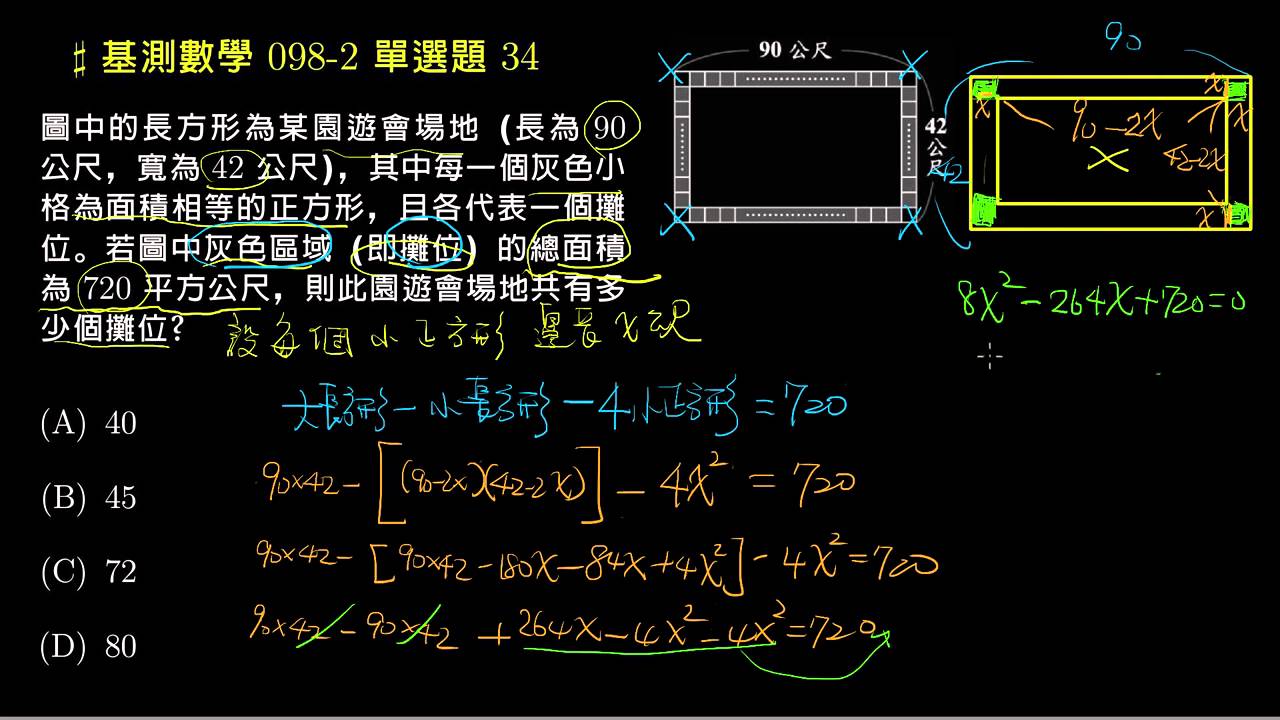 ♯ 基測數學 098-2 單選題 34
圖中的長方形為某園遊會場地 (長為 90
公尺，寬為 42 公尺)，其中每一個灰色小
格為面積相等的正方形，且各代表一個攤
位。若圖中灰色區域 (即攤位) 的總面積
為 720 平方公尺，則此園遊會場地共有多
少個攤位?
設每個小正方形邊長x公尺
90 公尺
42公尺
90
42
x
x
x
x
90-2x
42-2x
8x²-264x+720=0
大長方形-小長方形-4小正方形=720
90×42-[(90-2x)(42-2x)]-4x²=720
90×42-[90×42-180x-84x+4x²]-4x²=720
90×42-90×42+264x-4x²-4x²=720
(A) 40
(B) 45
(C) 72
(D) 80